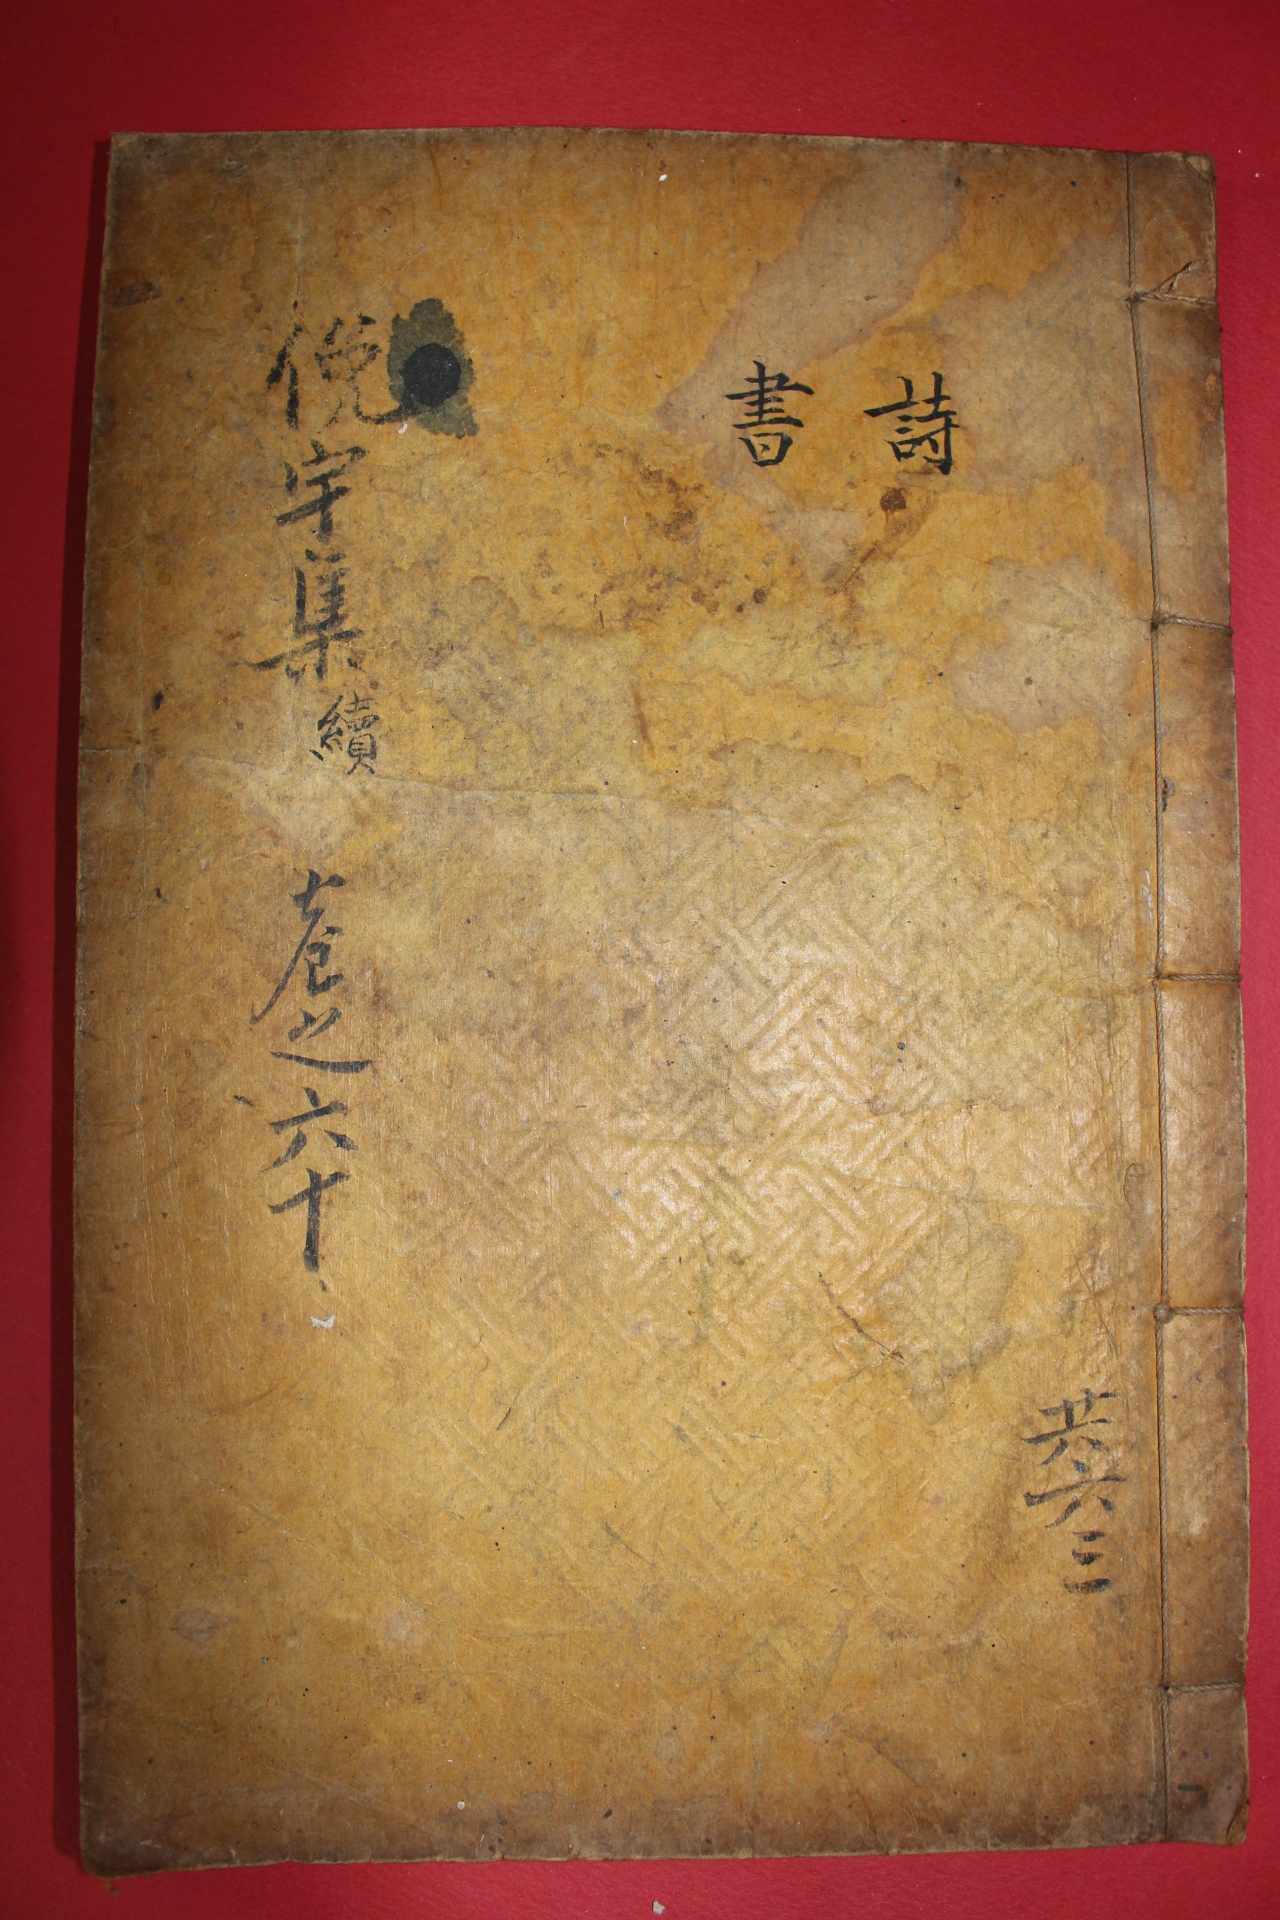 共六三
詩
書
俛宇集 續 卷之六十